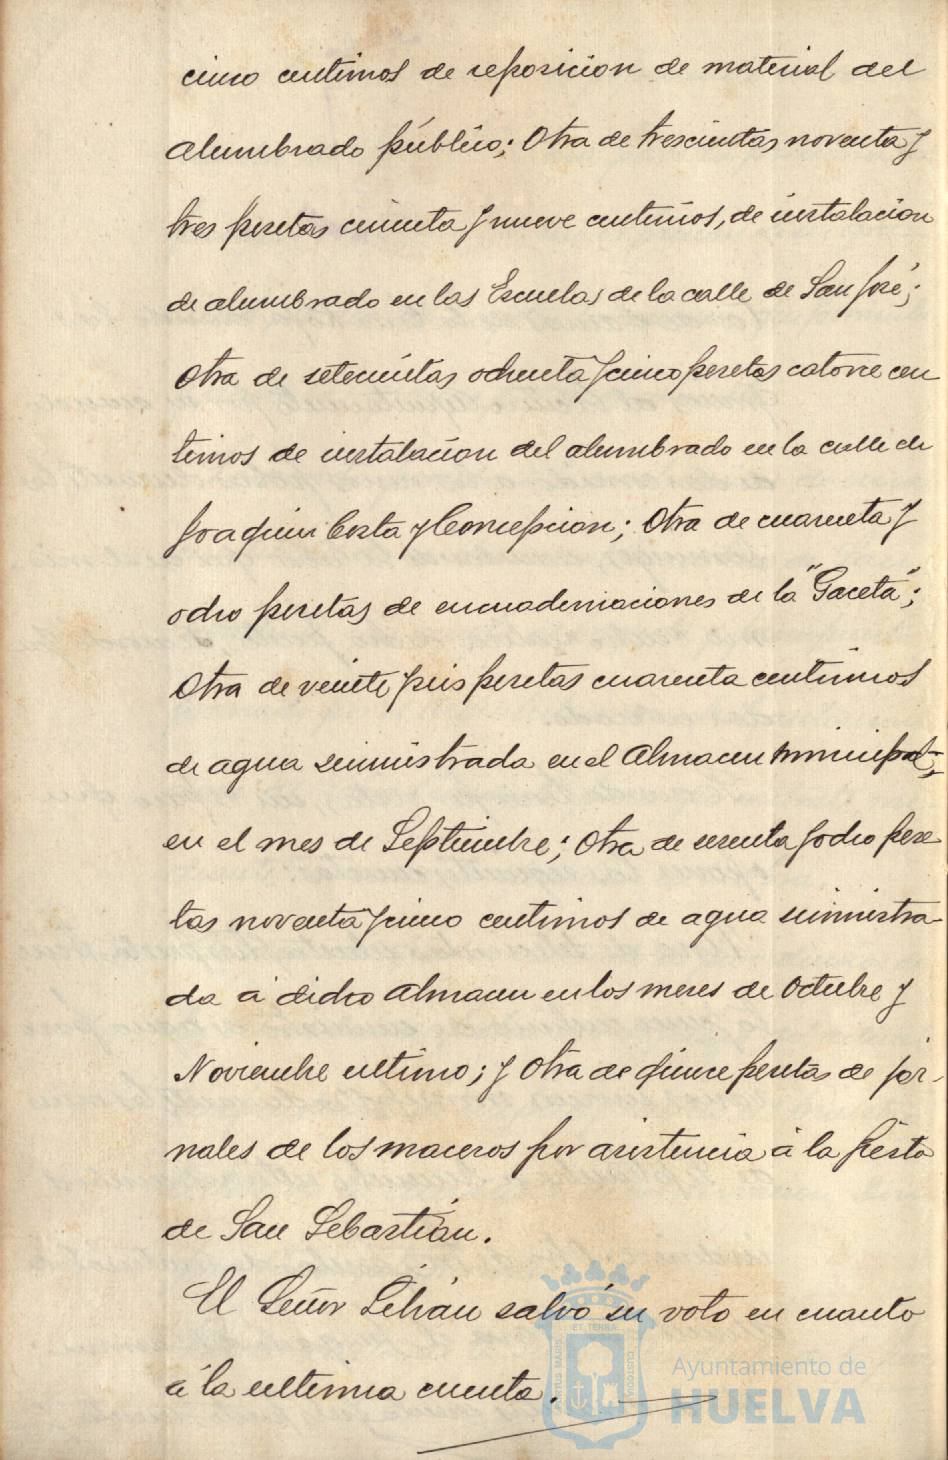 cinco centimos de reposicion de material del
alumbrado público; Otra de trescientas noventa y
tres pesetas cincuenta y nueve centimos, de instalacion
de alumbrado en las Escuelas de la calle de San José;
Otra de setecientas ochenta y cinco pesetas catorce cen
timos de instalacion del alumbrado en la calle de
Joaquin Costa y Concepcion; Otra de cuarenta y
ocho pesetas de encuadernaciones de la "Gaceta";
Otra de veinte y seis pesetas cuarenta centimos
de agua suministrada en el Almacen municipal;
en el mes de Septiembre; Otra de sesenta y ocho pese
tas noventa y cinco centimos de agua suministra-
da á dicho Almacen en los meses de Octubre y
Noviembre ultimo; y Otra de quince pesetas de jor-
nales de los maceros por asistencia á la fiesta
de San Sebastián.
El Señor salvó su voto en cuanto
á la ultima cuenta.
Ayuntamiento de
HUELVA